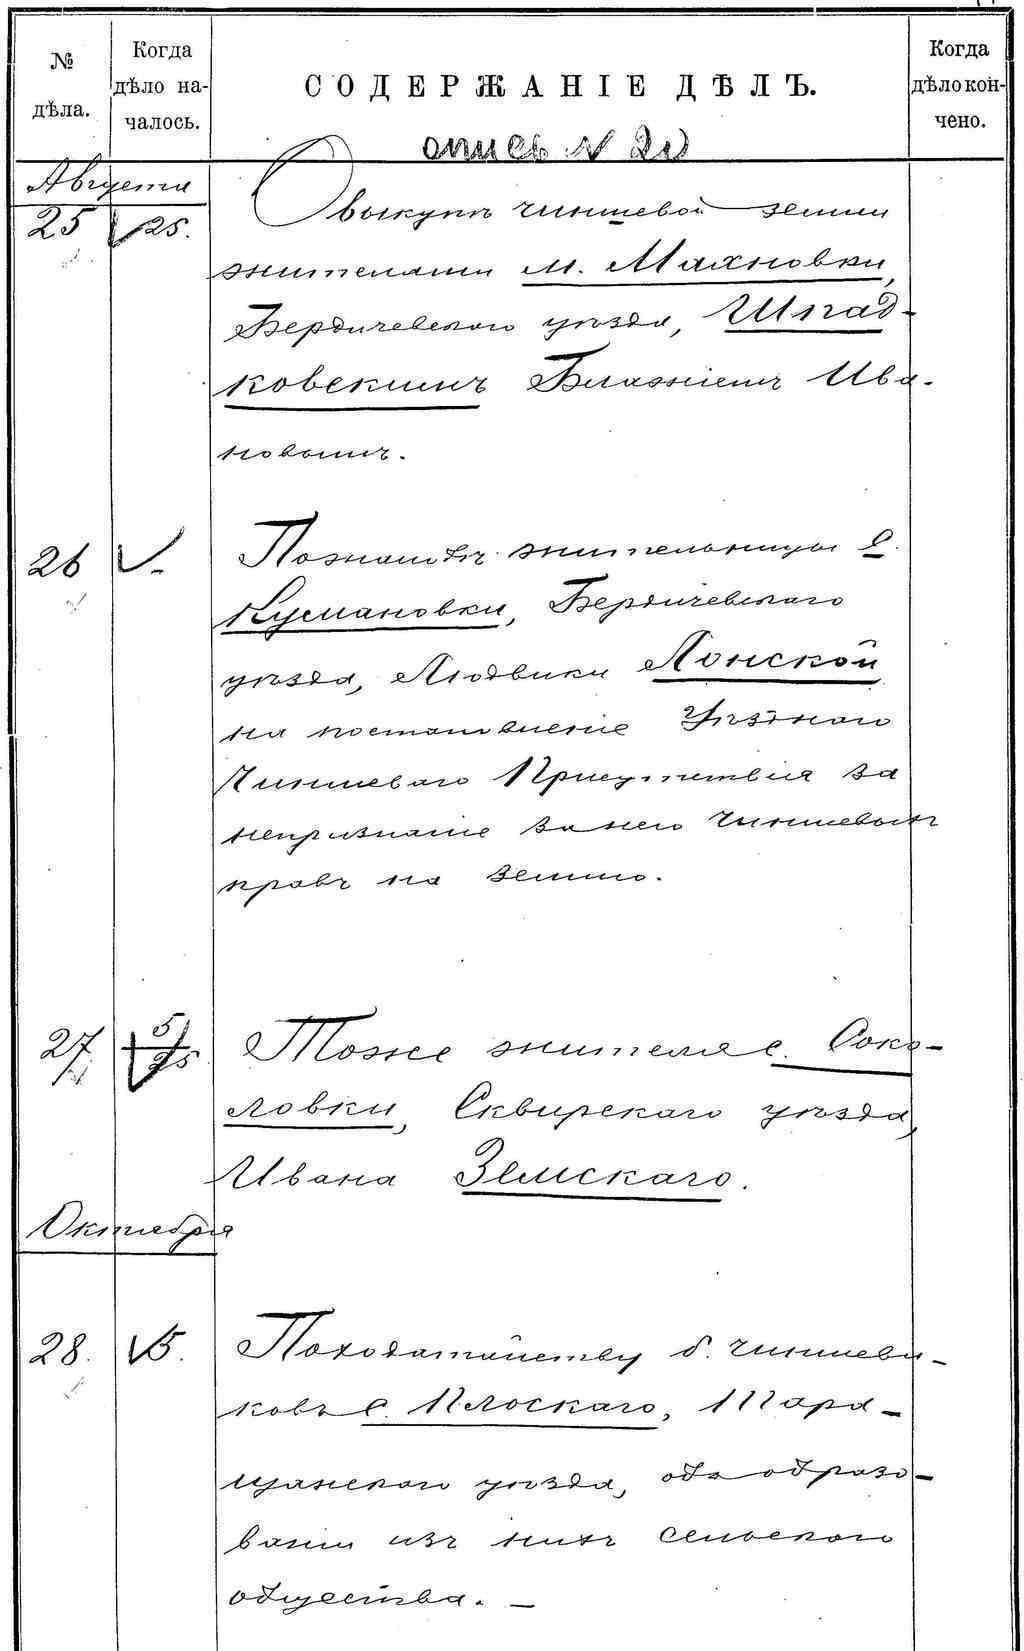 № дѣла.
Когда дѣло на-чалось.
СОДЕРЖАНІЕ ДѢЛЪ.
Когда дѣло кон-чено.
опись № 20
Августа
25
25.
О выкупѣ чиншевой земли
жителями м. Махновки,
Бердичевского уѣзда, Шпад-
ковскимъ Блажіемъ Ива-
новымъ.
26
По жалобѣ жительницы с.
Кумановки, Бердичевскаго
уѣзда, Людвики Лонской
на постановленіе Уѣзднаго
Чиншеваго Присутствія за
непризнаніе за нею чиншевыхъ
правъ на землю.
27
5/25
Тоже жителя с. Соко-
ловки, Сквирскаго уѣзда,
Ивана Земскаго.
Октября
28.
5.
По ходатайству б. чиншеви-
ковъ с. Плоскаго, Тара-
щанскаго уѣзда, объ образо-
ваніи изъ нихъ сельскаго
общества. —